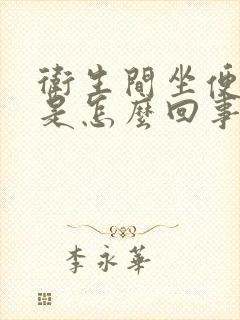 衛生間坐便
是怎麼回事
李永華